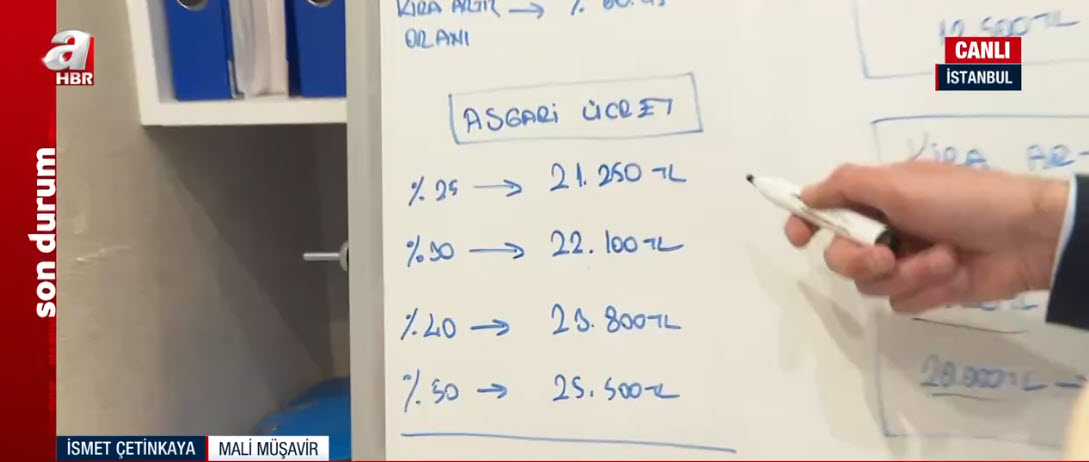 a
HBR
son durum
KİRA ARTIŞ → %
ORANI
ASGARİ ÜCRET
%25 → 21.250 TL
%30 → 22.100 TL
%40 → 23.800 TL
%50 → 25.500 TL
12.500 TL
CANLI
İSTANBUL
KİRA AR
20.000 TL →
İSMET ÇETİNKAYA
MALİ MÜŞAVİR